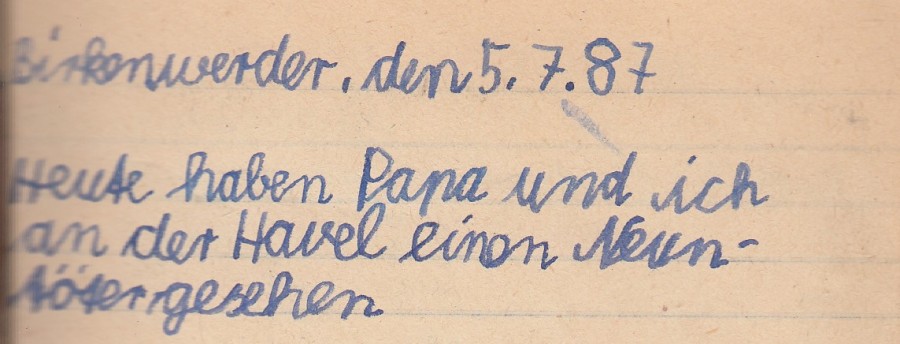 Birkenwerder, den 5. 7. 87
Heute haben Papa und ich
an der Havel einen Neun-
töter gesehen